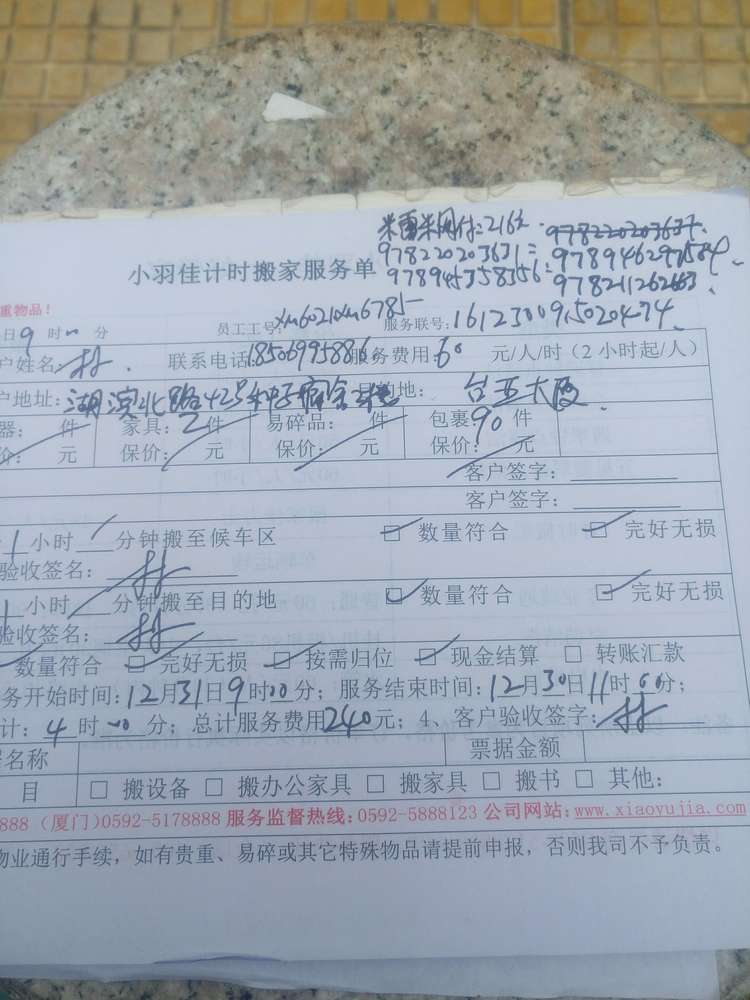 米雷米网付:216元 978220203637.
978220203631= 978946297584.
小羽佳计时搬家服务单 978945358356= 978211262663.
重物品!
日9时00分 员工工号:xm6021xm6785 服务联号:16123009,5020474.
户姓名 林. 联系电话18506995886 服务费用:60元/人/时(2小时起/人)
户地址:湖滨北路42号种子宿舍 目的地:台亚大厦.
器: 件 家具:2件 易碎品: 件 包裹:90件
价: 元 保价: 元 保价: 元 保价: 元
客户签字:
客户签字:
1小时 分钟搬至候车区 数量符合 完好无损
验收签名:林
小时 分钟搬至目的地 数量符合 完好无损
验收签名:林
数量符合 完好无损 按需归位 现金结算 转账汇款
务开始时间:12月31日9时00分;服务结束时间:12月30日11时00分;
计:4时00分;总计服务费用240元;4、客户验收签字:林
名称 票据金额
目 搬设备 搬办公家具 搬家具 搬书 其他:
888(厦门)0592-5178888 服务监督热线:0592-5888123 公司网站:www.xiaoyujia.com
物业通行手续,如有贵重、易碎或其它特殊物品请提前申报,否则我司不予负责。